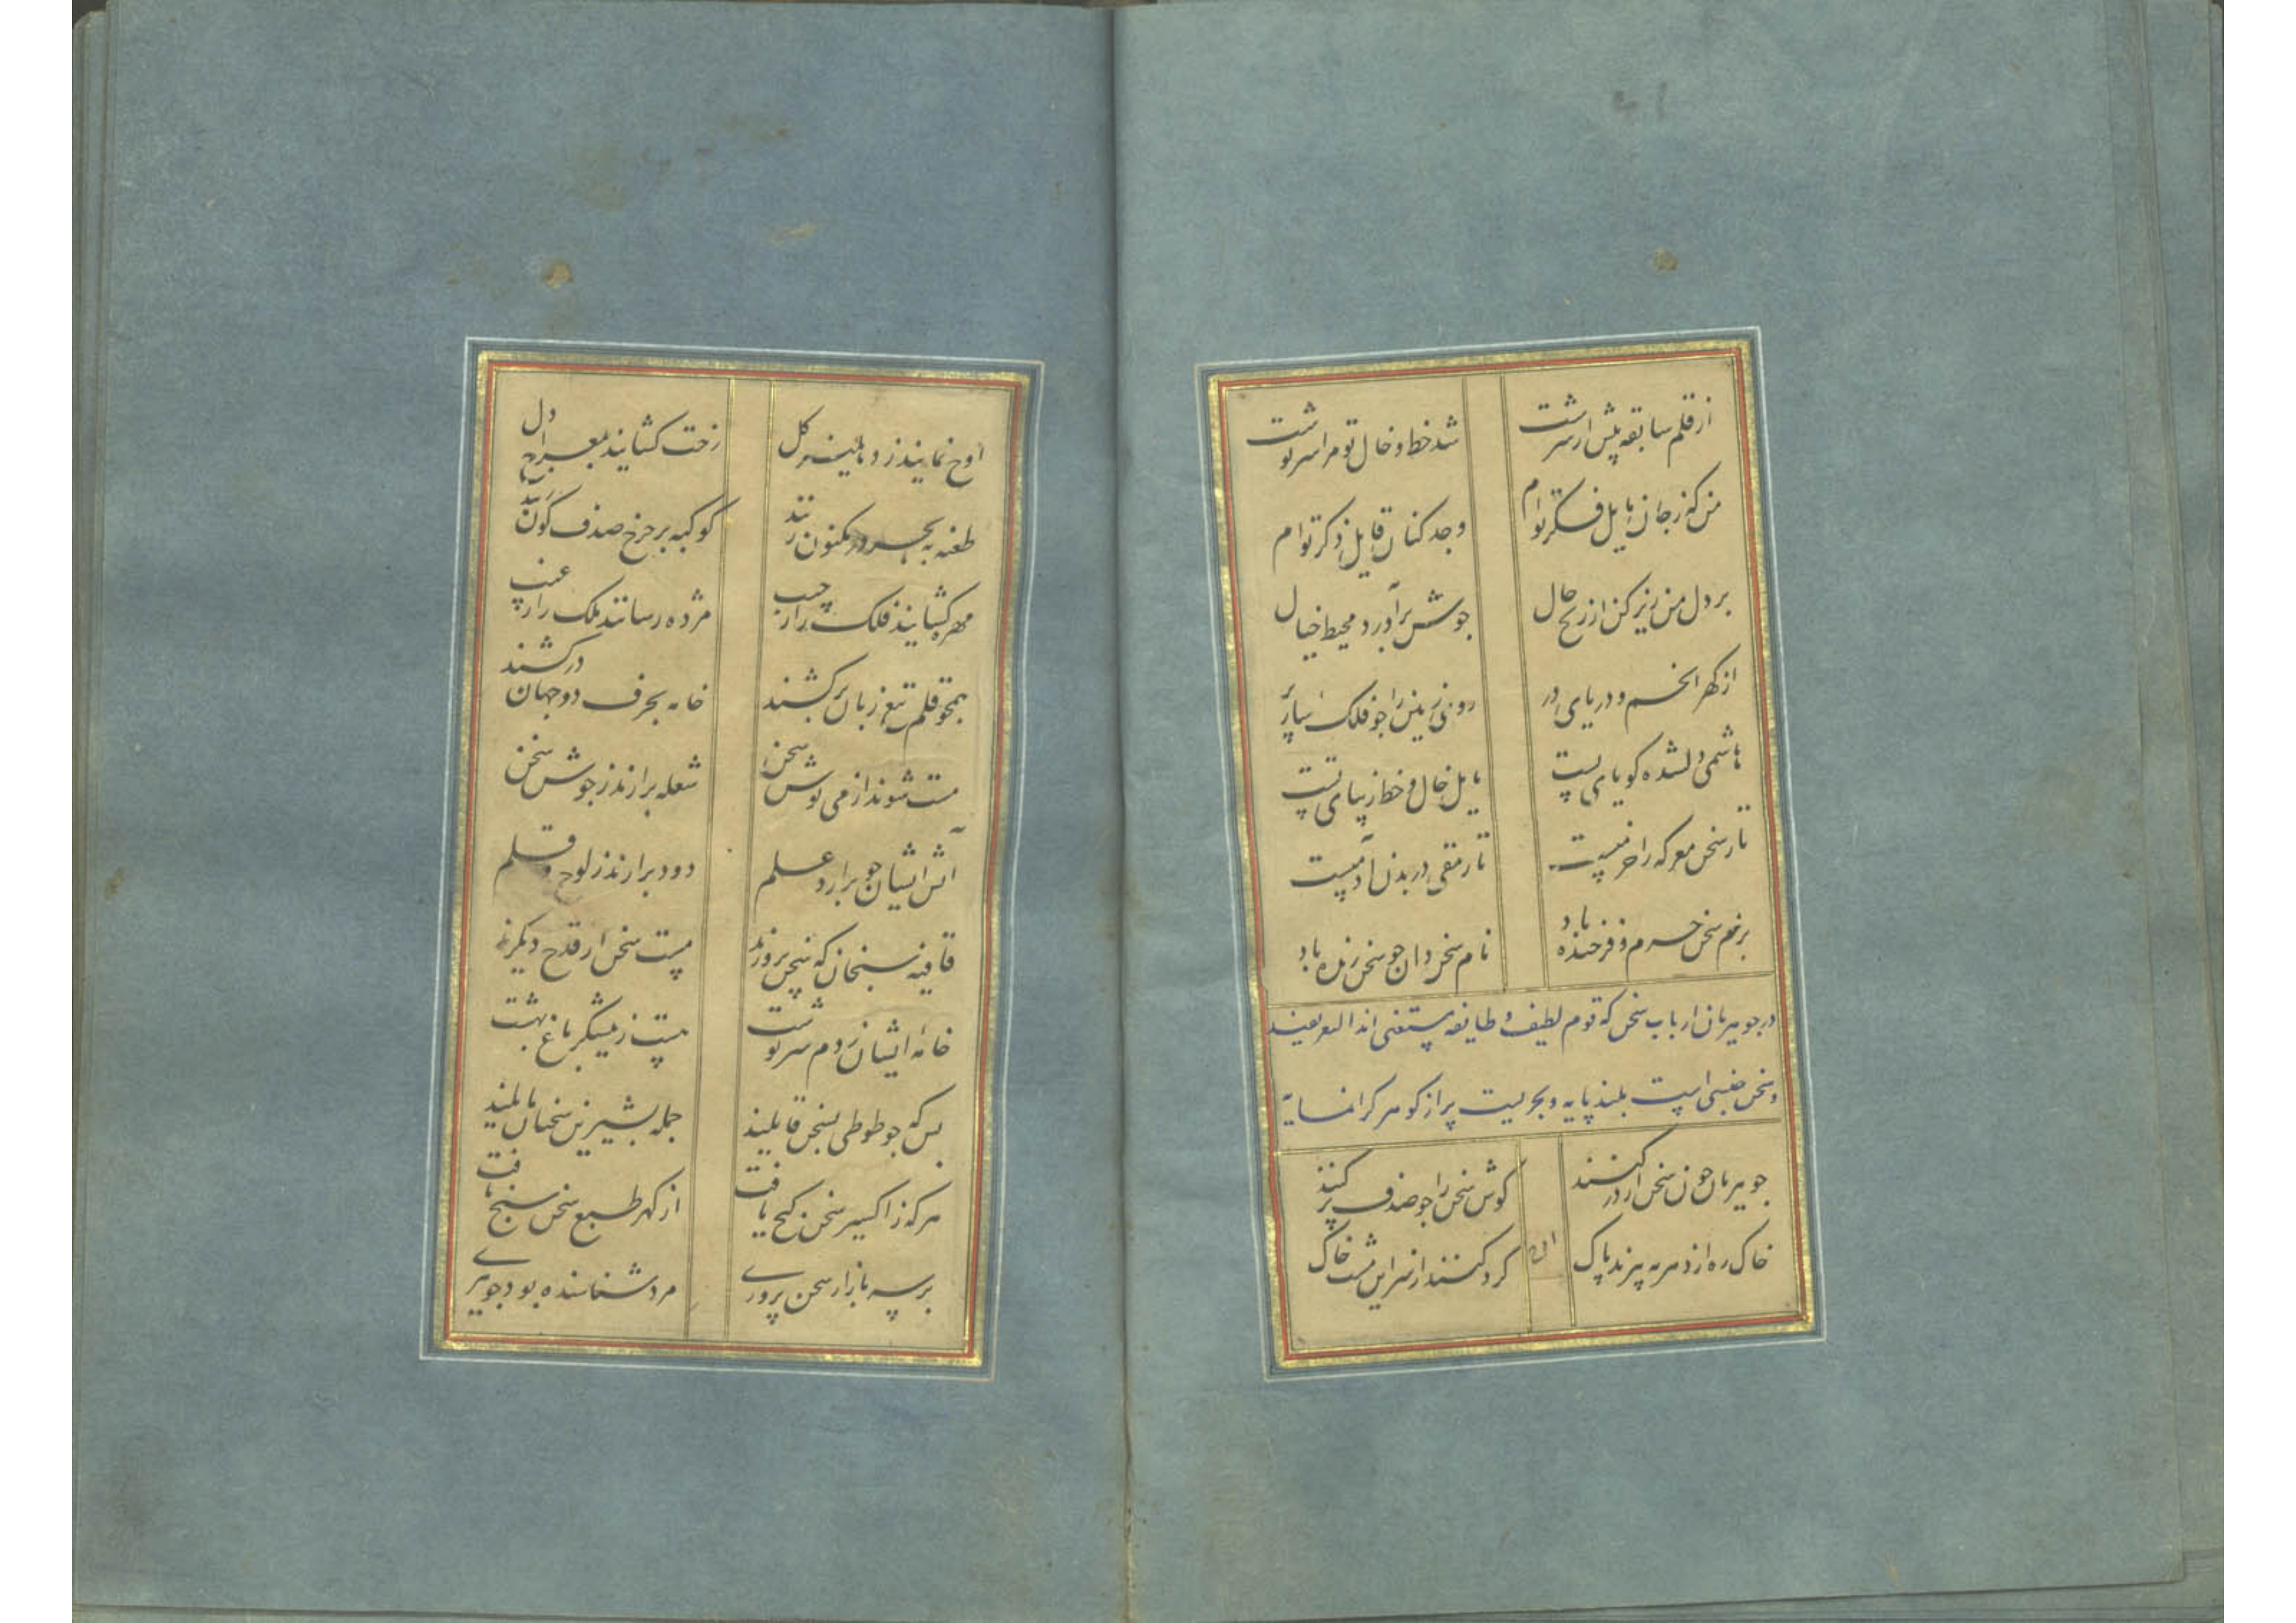 از قلم سابقه پیش از سرشت
شد خط و خال تو مرا سرنوشت
من که ز جان مایل فکر توام
وجد کنان قایل ذکر توام
بر دل من ریز کن از رخ حال
جوشش برآورد محیط خیال
از کهر انجم و دریای در
روئی زمین را جو فلک ساز پر
هاشمی دلشده کویای تست
مایل خال و خط زیبای تست
تا ز سخن معرکه را خرمیست
تا رمقی در بدن آدمیست
بزم سخن خرم و فرخنده باد
نام سخن دان جو سخن زنده باد
در جوهریان ارباب سخن که قوم لطیف و طایفه مستغنی اند
و سخن جنسی است بلند پایه و بحریست پر از کوهر کرانمایه
جوهریان جون سخن از در کنند
کوش سخن را جو صدف پر کنند
خاک ره از دهر به پرند پاک
کرد کنند از سر این مشت خاک
اوج نمایند ز کل
رخت کشایند بمعراج دل
طعنه به بحر در مکنون زنند
کوکبه بر جرخ صدف کون زنند
مهره کشایند فلک را ز جیب
مژده رسانند ملک را ز غیب
همجو قلم تیغ زبان برکشند
خامه بحرف دو جهان درکشند
مست شوند از می نوش سخن
شعله برارند ز جوش سخن
آتش ایشان جو برارد علم
دود برارند ز لوح و قلم
قافیه سنجان که سخن پرورند
مست سخن از قدح دیکرند
خامه ایشان ز دم سرنوشت
هست ز نیشکر باغ بهشت
بس که جو طوطی بسخن قابلند
جمله بشیرین سخنان مایلند
هر که ز اکسیر سخن کنج یافت
از کهر طبع سخن سنج یافت
بر سر بازار سخن پروری
مرد شناسنده بود جوهری